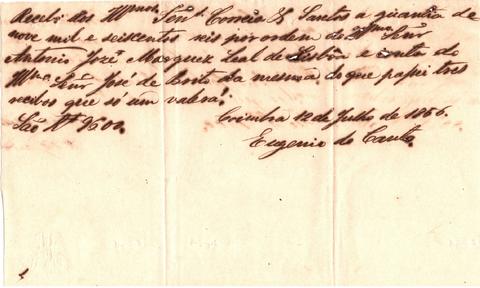 Recebi dos Illmos Senrs Correia & Santos a quantia de
nove mil e seiscentos reis por ordem do Illmo Senr
Antonio José Marques Leal de Lisboa e conta do
Illmo Senr José de Brito da mesma, do que passei tres
recibos que só um valera!
São Rs 9600.
Coimbra 12 de Julho de 1866.
Eugenio do Canto